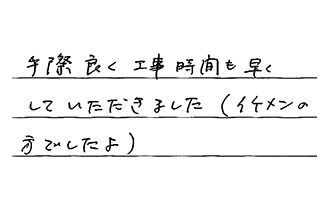 手際良く工事時間も早く
していただきました（イケメンの
方でしたよ）